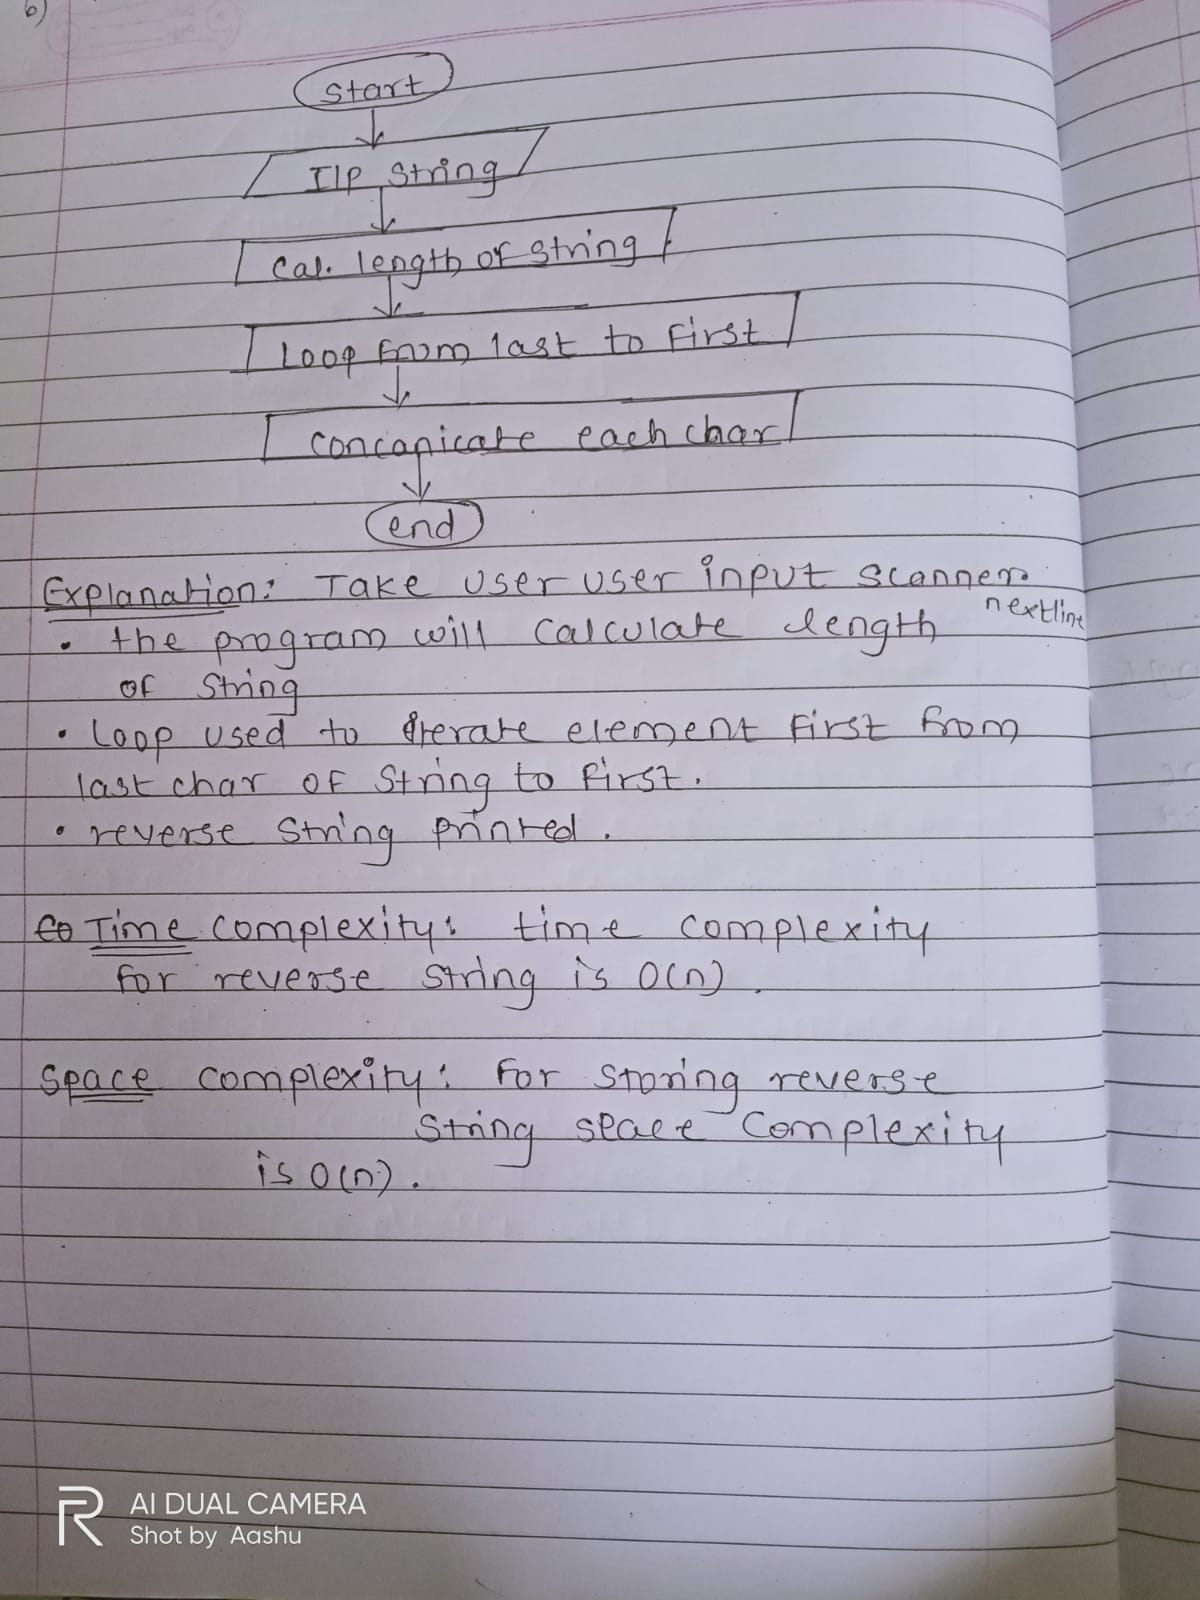 6)
Start
I/P String
Cal. length of string
Loop from last to First
Concanicate each char
end
Explanation: Take user user input scanner.
nextline
• the program will calculate length
of String
• Loop used to iterate element First from
last char of String to First.
• reverse String printed.
Co Time complexity: time complexity
for reverse string is O(n).
Space complexity: For storing reverse
String space complexity
is O(n).
R AI DUAL CAMERA
Shot by Aashu